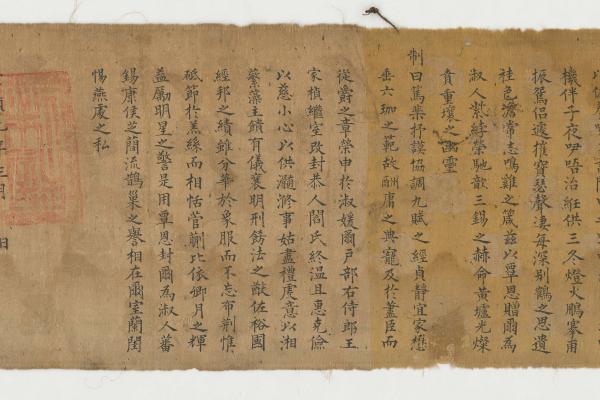 機伴子夜咿唔治紝供三冬燈火鵬搴甫
振鴛侶遽摧寶瑟聲淒每深別鶴之思遺
袿色澹常志鳴雞之箴茲以覃恩贈爾為
淑人紫綍榮馳歆三錫之赫侖黃壚光燦
貴重壤之幽靈
制曰篤棐抒謨協調九賦之經貞靜宜家懋
垂六珈之範故酬庸之典寵及於藎臣而
從爵之章榮申於淑媛爾戶部右侍郎王
家楨繼室改封恭人閻氏終溫且惠克儉
以慈小心以供瀡滫事姑盡禮虔意以湘
蘩藻主饋有儀襄明刑飭法之猷佐裕國
經邦之績雖分華於象服而不忘布荊惟
砥節於羔絲而相恬菅蒯比依卿月之輝
益勵明星之警是用覃恩封爾為淑人蕃
錫康侯芝簡流鵲巢之譽相在爾室蘭閨
惕燕處之私
禎元年三月 日